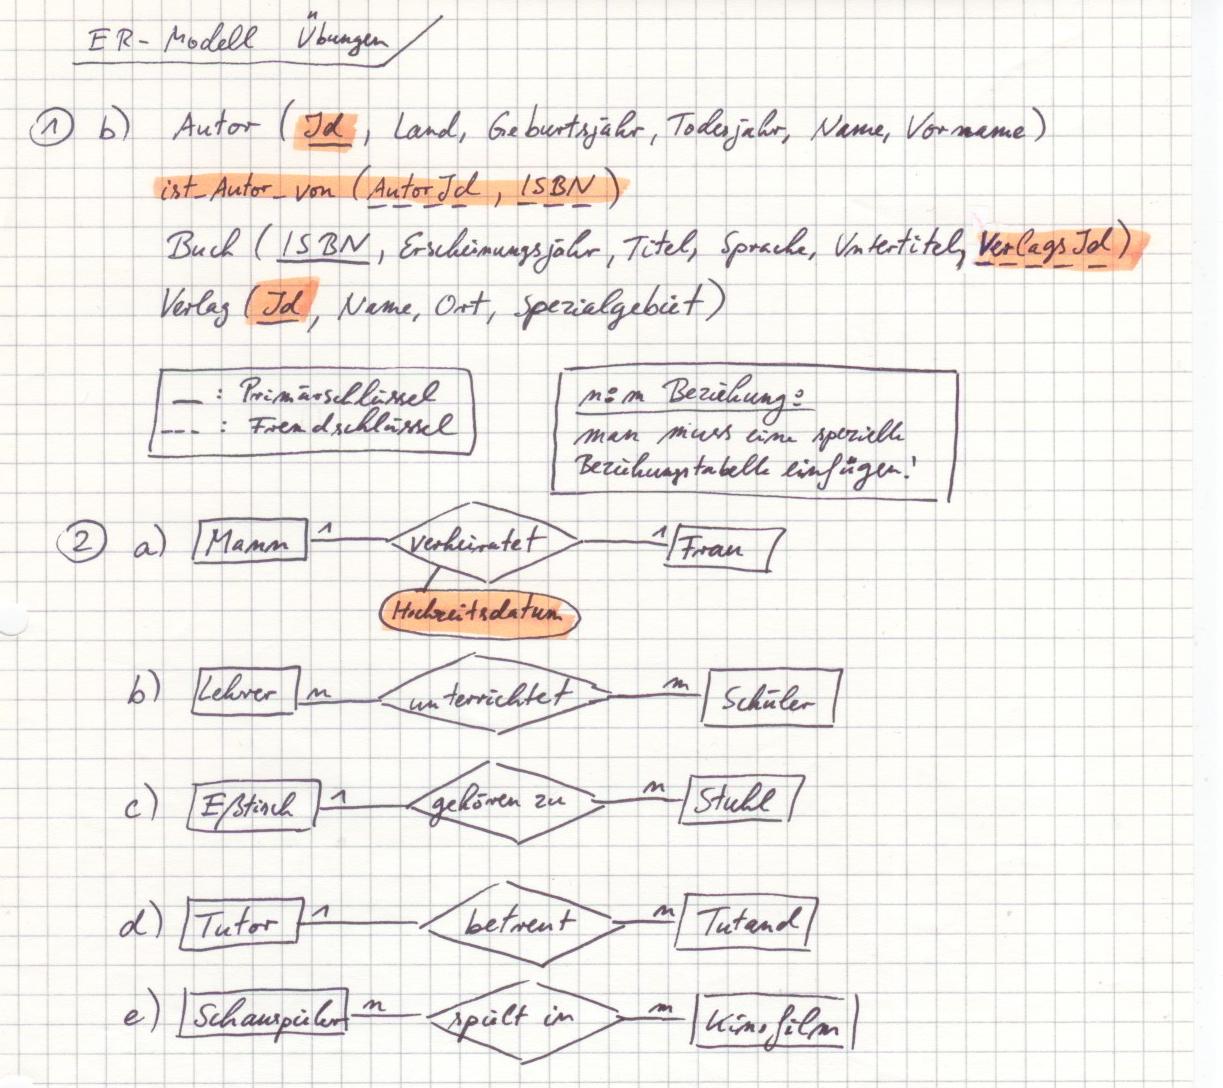 ER-Modell Übungen
1 b) Autor (Id, Land, Geburtsjahr, Todesjahr, Name, Vorname)
ist_Autor_von (AutorId, ISBN)
Buch (ISBN, Erscheinungsjahr, Titel, Sprache, Untertitel, VerlagsId)
Verlag (Id, Name, Ort, Spezialgebiet)
— : Primärschlüssel
--- : Fremdschlüssel
n:m Beziehung:
man muss eine spezielle
Beziehungstabelle einfügen!
2 a) Mann 1 verheiratet 1 Frau
Hochzeitsdatum
b) Lehrer n unterrichtet m Schüler
c) Eßtisch 1 gehören zu n Stuhl
d) Tutor 1 betreut n Tutand
e) Schauspieler n spielt in m Kinofilm